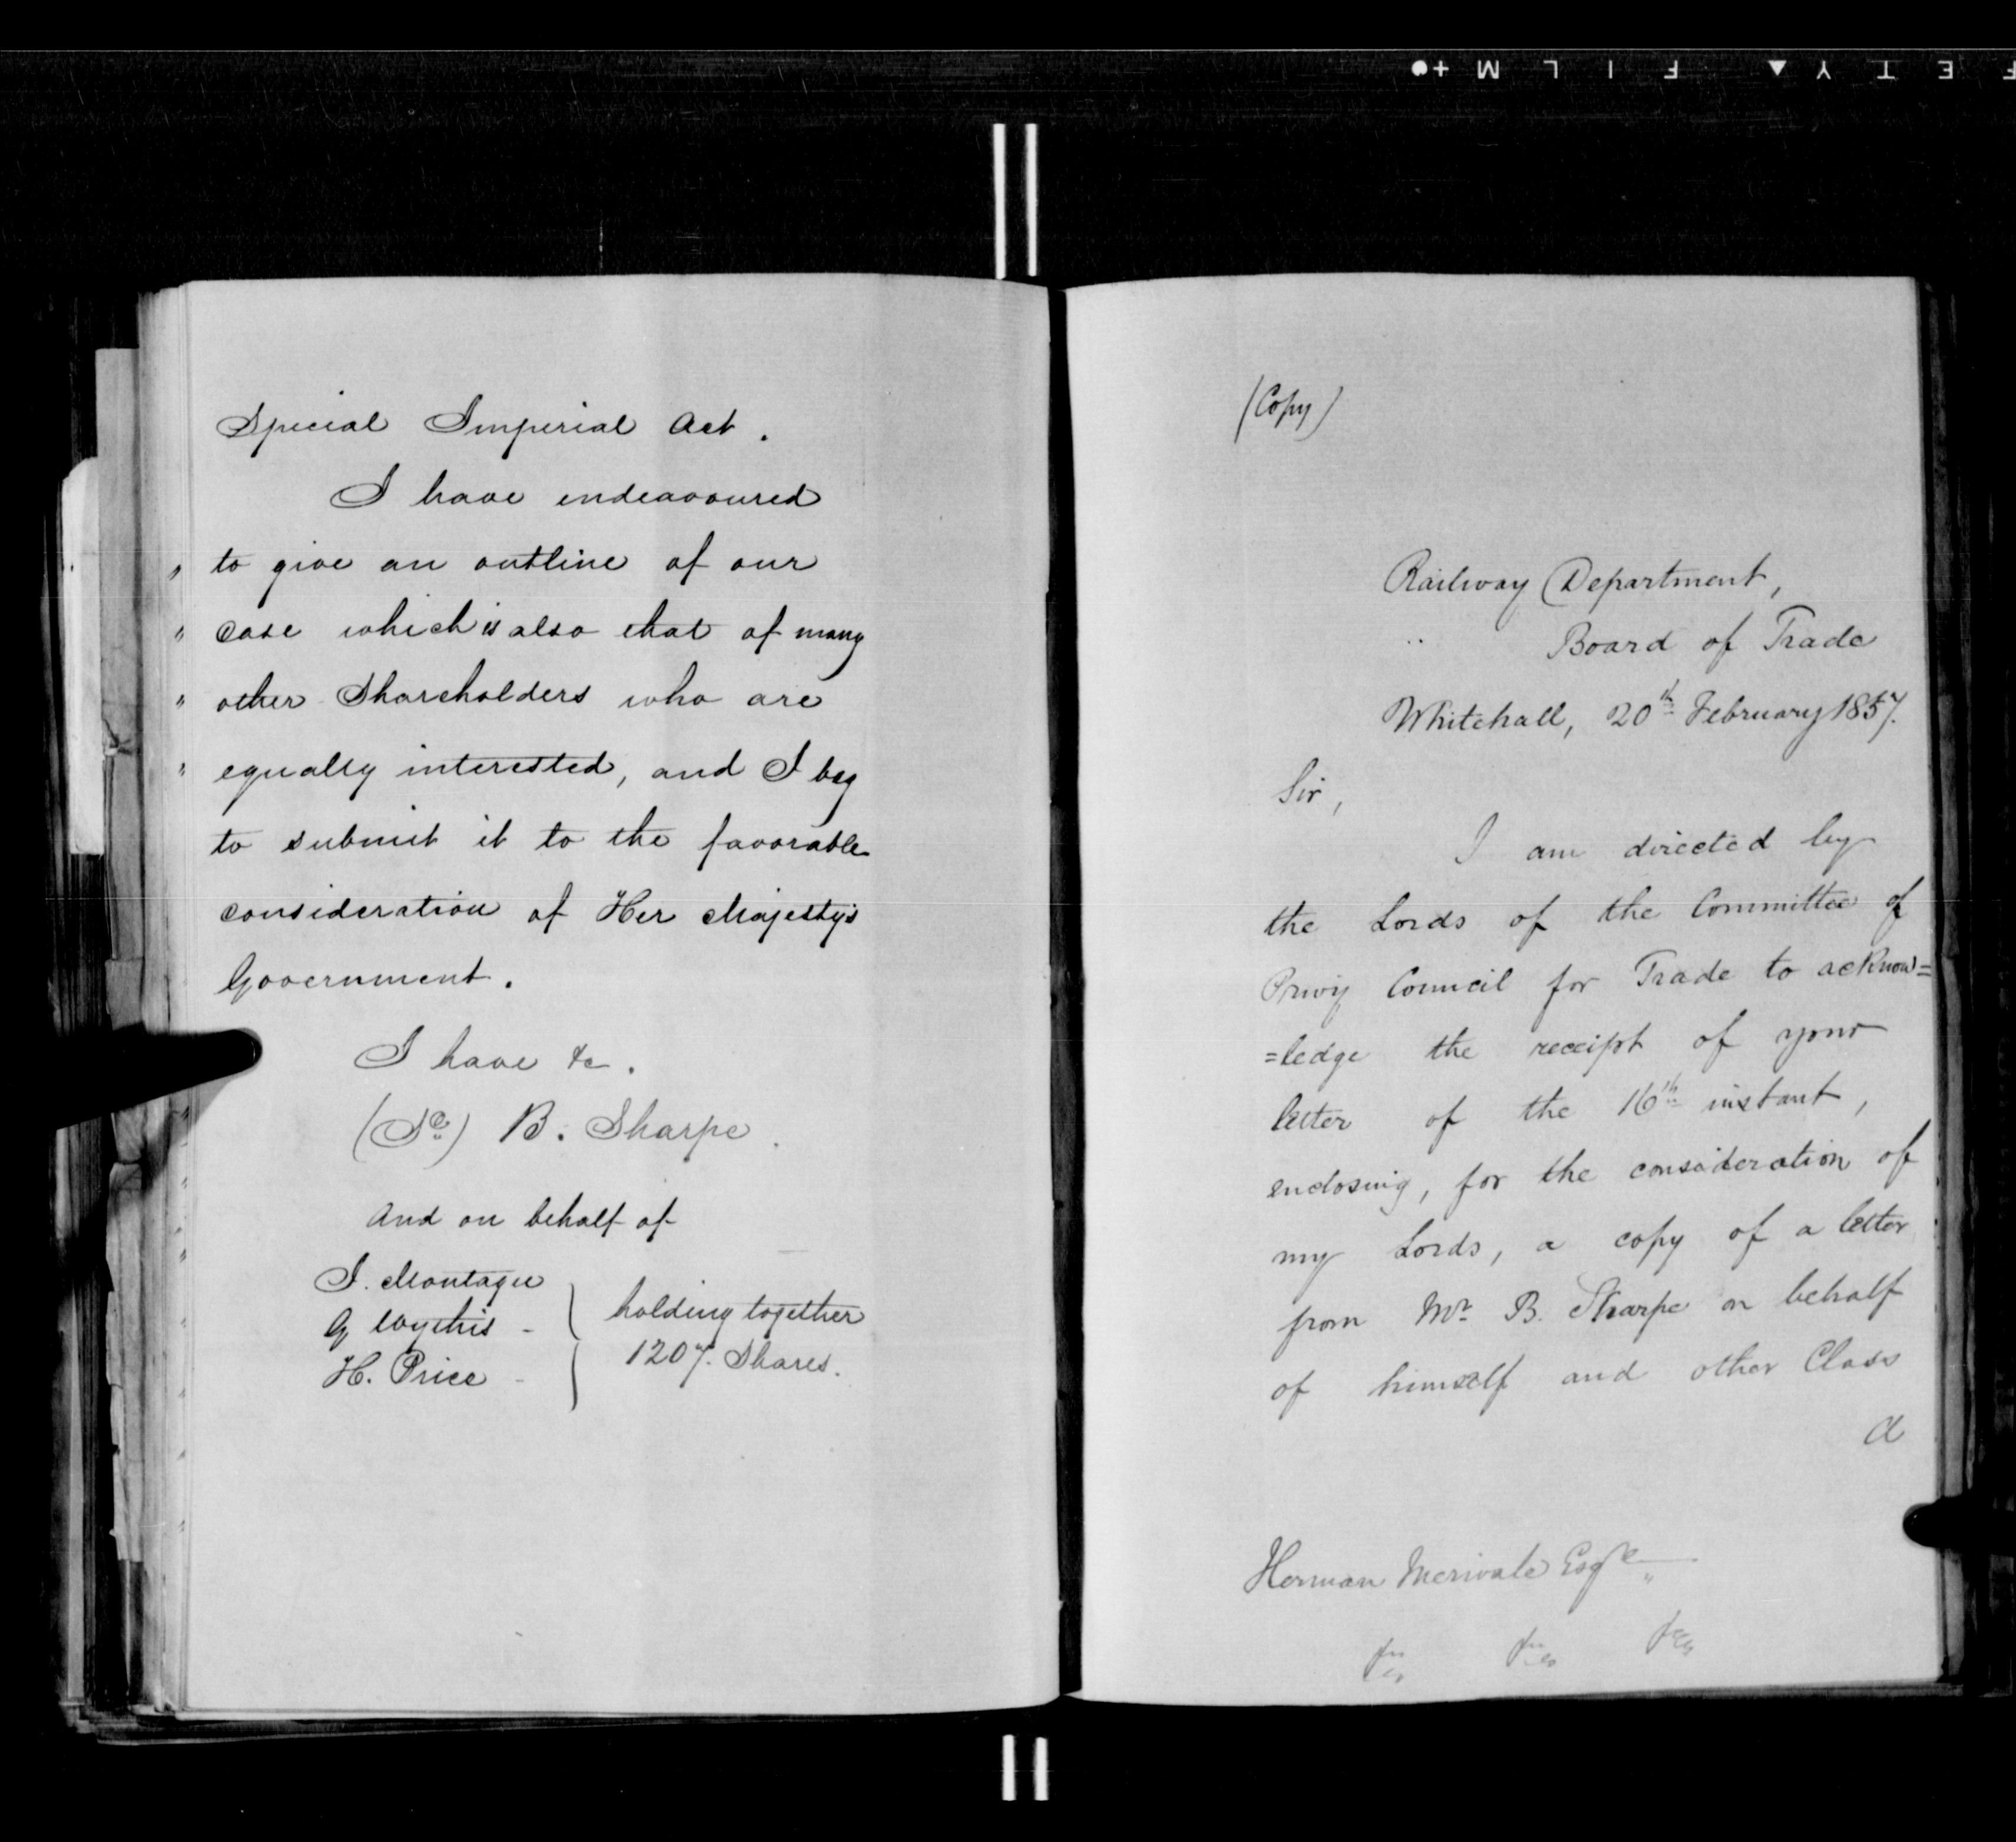 Special Imperial Act.
I have endeavoured
to give an outline of our
case which is also that of many
other Shareholders who are
equally interested, and I beg
to submit it to the favorable
consideration of Her Majesty's
Government.
I have &c.
(Sd) B. Sharpe.
And on behalf of
I. Montagu
G Wythis -
H. Price -
holding together
1207. Shares.
(Copy)
Railway Department,
Board of Trade
Whitehall, 20th February 1857.
Sir,
I am directed by
the Lords of the Committee of
Privy Council for Trade to acknow=
=ledge the receipt of your
letter of the 16th instant,
enclosing, for the consideration of
my Lords, a copy of a letter
from Mr B. Sharpe on behalf
of himself and other Class
A
Herman Merivale Esqre
&c &c &c
SAFETY FILM